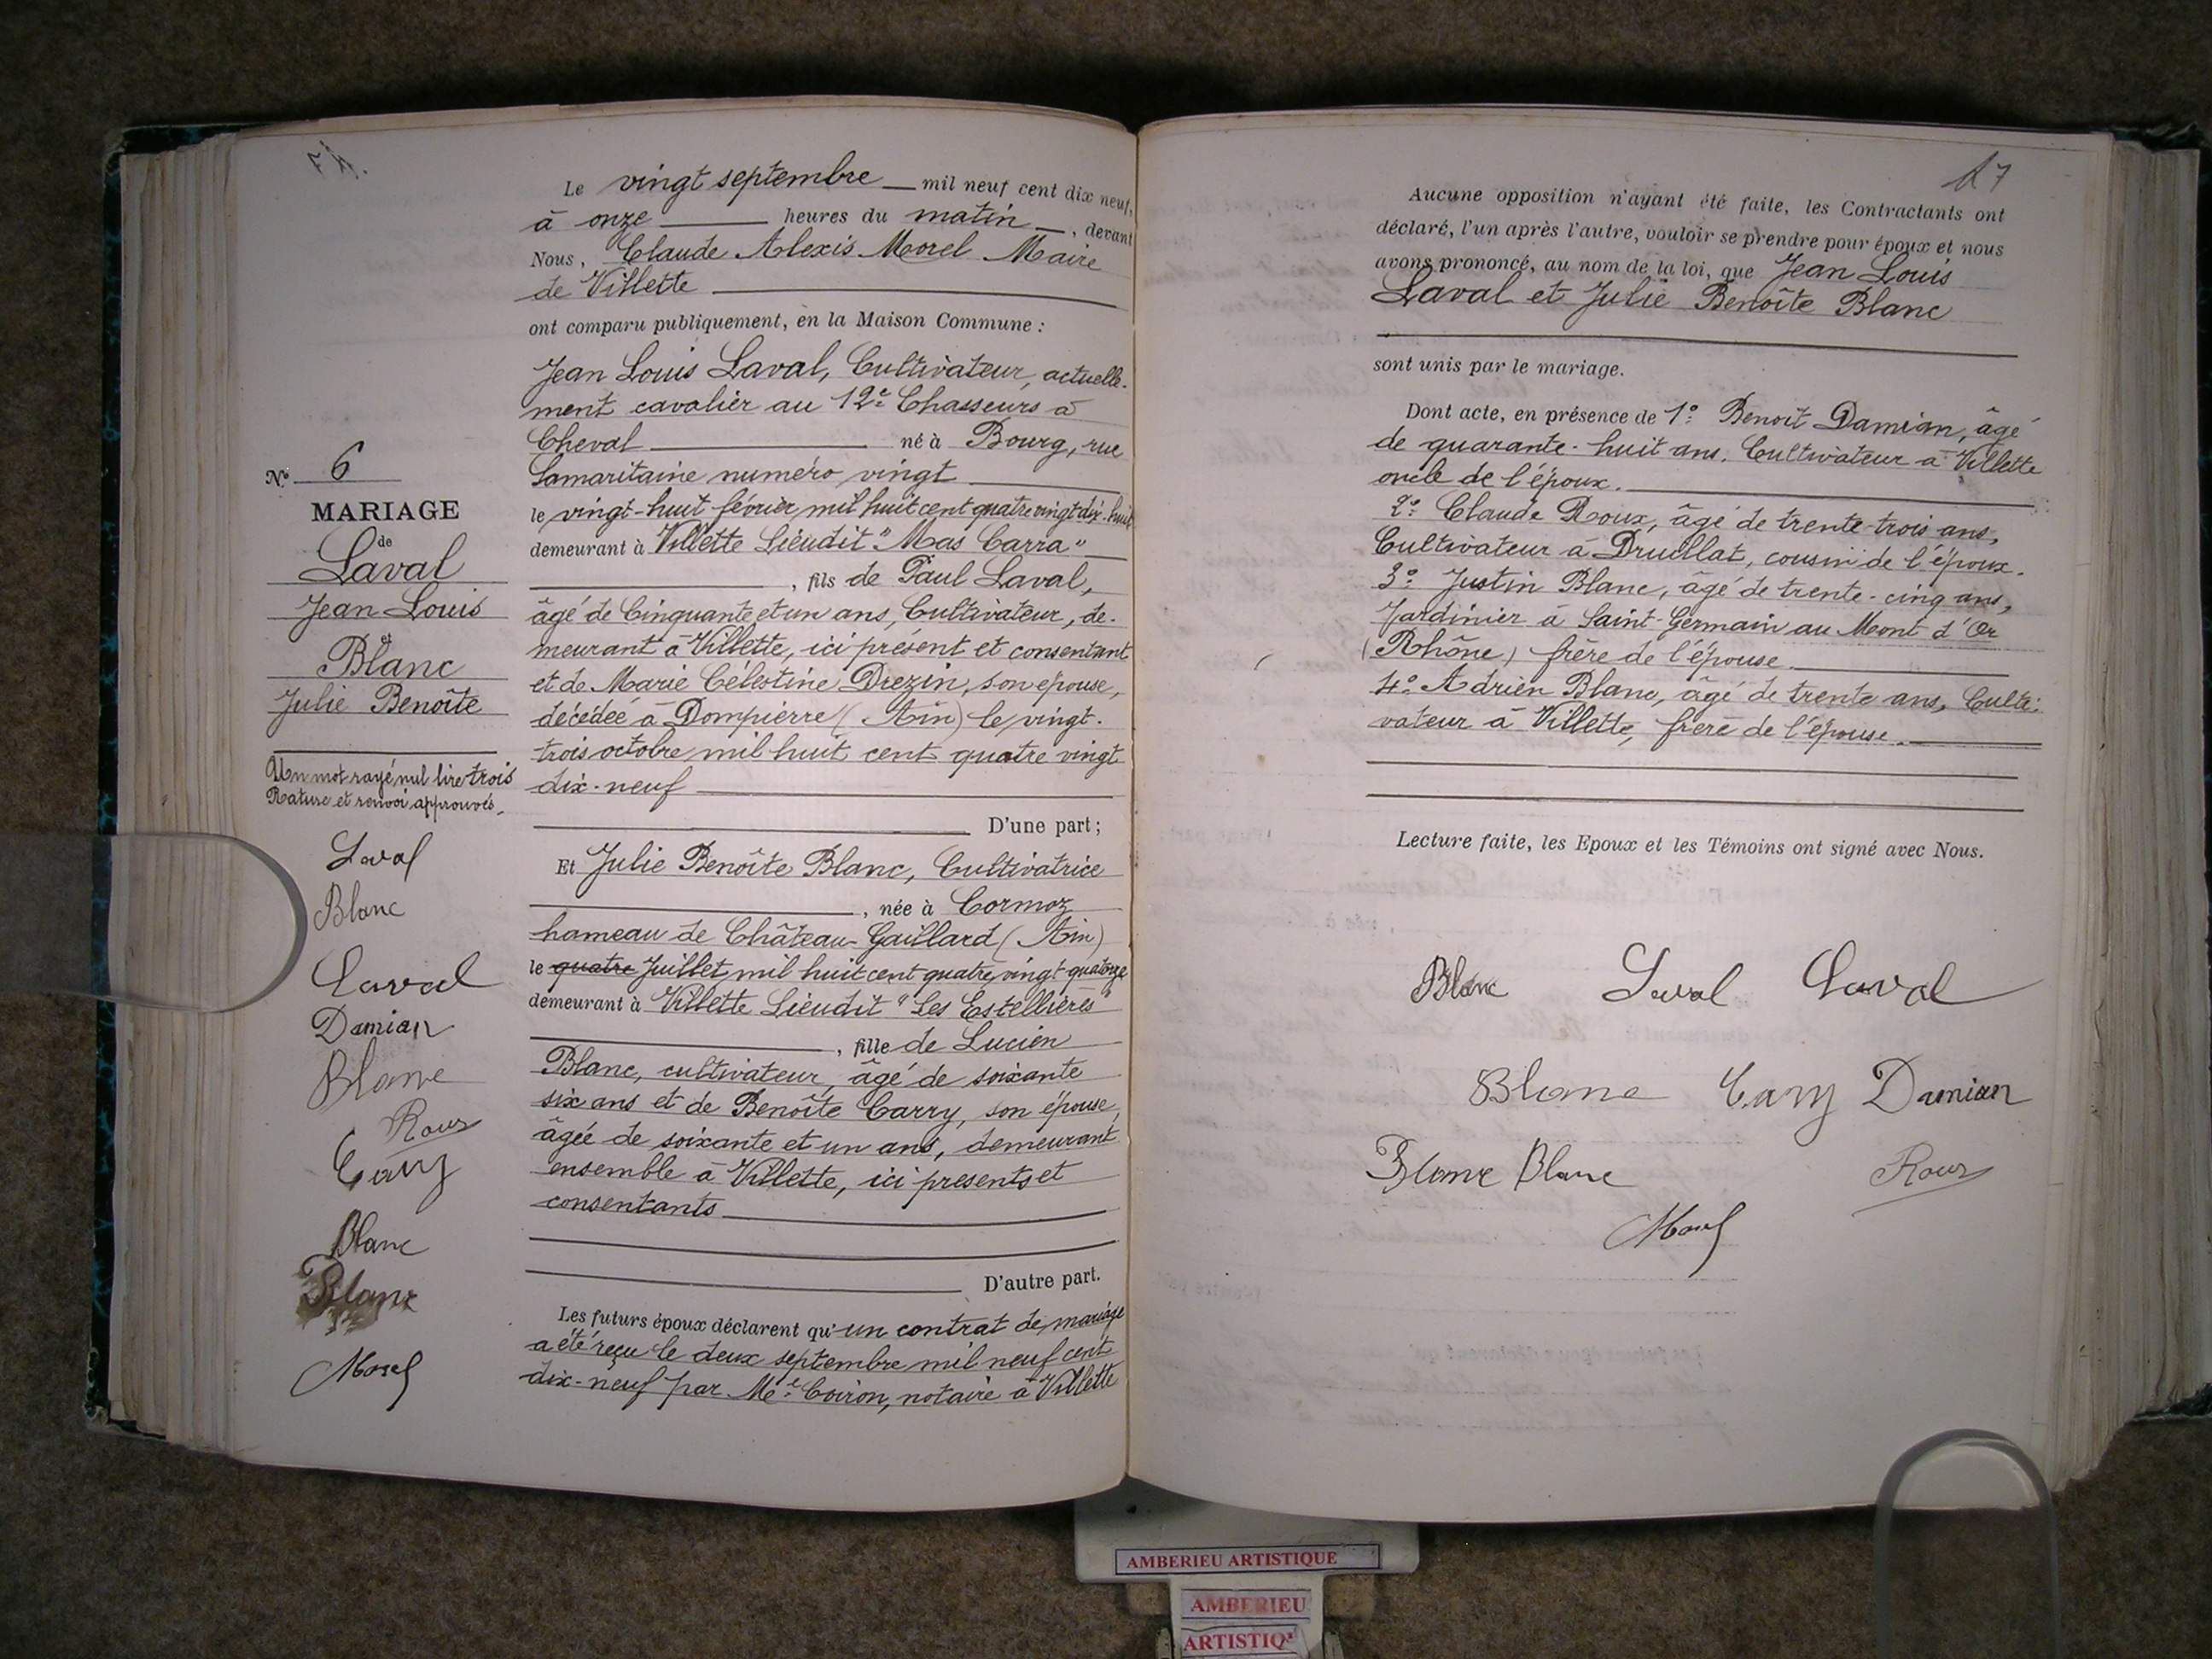 Le vingt septembre mil neuf cent dix neuf,
à onze heures du matin, devant
Nous, Claude Alexis Morel Maire
de Villette
ont comparu publiquement, en la Maison Commune :
Jean Louis Laval, Cultivateur, actuelle-
ment cavalier au 12e Chasseurs à
Cheval né à Bourg, rue
Samaritaine numéro vingt
le vingt-huit février mil huit cent quatre vingt dix-huit
demeurant à Villette Lieudit "Mas Carra"
, fils de Paul Laval,
âgé de Cinquante et un ans, Cultivateur, de-
meurant à Villette, ici présent et consentant
et de Marie Célestine Drezin, son épouse,
décédée à Dompierre (Ain) le vingt-
trois octobre mil huit cent quatre vingt
dix-neuf
D'une part ;
Et Julie Benoîte Blanc, Cultivatrice
, née à Cormoz
hameau de Château-Gaillard (Ain)
le quatre Juillet mil huit cent quatre vingt quatorze
demeurant à Villette Lieudit "Les Estellières"
, fille de Lucien
Blanc, cultivateur, âgé de soixante
six ans et de Benoîte Carry, son épouse,
âgée de soixante et un ans, demeurant
ensemble à Villette, ici présents et
consentants
D'autre part.
Les futurs époux déclarent qu'un contrat de mariage
a été reçu le deux septembre mil neuf cent
dix-neuf par Me Coiron, notaire à Villette
No 6
MARIAGE
de
Laval
Jean Louis
et
Blanc
Julie Benoîte
Un mot rayé nul lire trois
Rature et renvoi approuvés.
Laval
Blanc
Laval
Damian
Blanc
Roux
Carry
Blanc
Blanc
Morel
17
Aucune opposition n'ayant été faite, les Contractants ont
déclaré, l'un après l'autre, vouloir se prendre pour époux et nous
avons prononcé, au nom de la loi, que Jean Louis
Laval et Julie Benoîte Blanc
sont unis par le mariage.
Dont acte, en présence de 1o Benoit Damian, âgé
de quarante-huit ans, Cultivateur à Villette
oncle de l'époux.
2o Claude Roux, âgé de trente-trois ans,
Cultivateur à Druillat, cousin de l'époux.
3o Justin Blanc, âgé de trente-cinq ans,
Jardinier à Saint-Germain au Mont d'Or
(Rhône) frère de l'épouse.
4o Adrien Blanc, âgé de trente ans, Culti-
vateur à Villette, frère de l'épouse.
Lecture faite, les Epoux et les Témoins ont signé avec Nous.
Blanc Laval Laval
Blanc Carry Damian
Blanc Blanc Roux
Morel
AMBERIEU ARTISTIQUE
AMBERIEU
ARTISTIQ